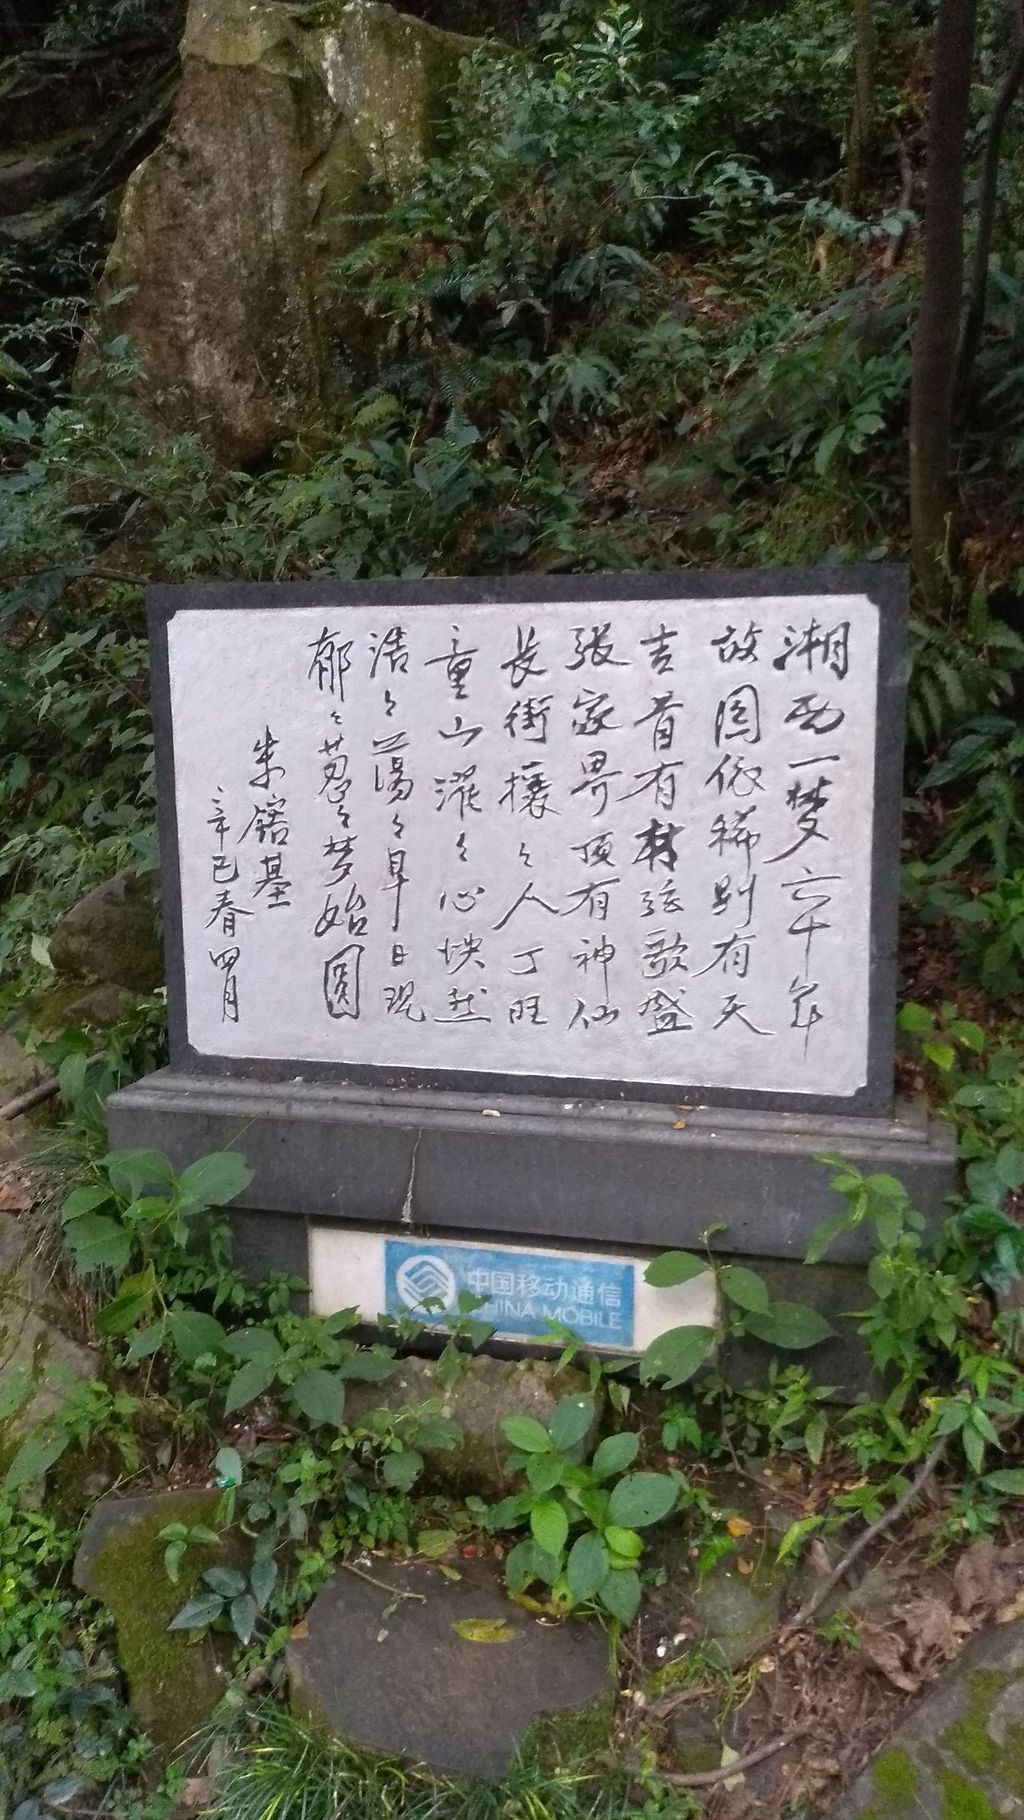 湘西一梦六十年
故园依稀别有天
吉首有材弦歌盛
张家界顶有神仙
长街攘々人丁旺
童山濯々心怏然
浩々荡々早日现
郁々葱々梦始圆
朱镕基
辛巳春四月
中国移动通信
CHINA MOBILE